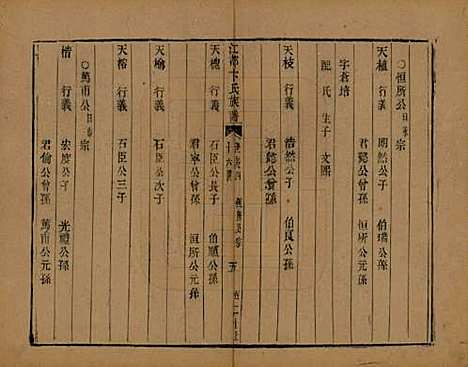 ○恒所公日求宗
天植 行義 明然公子 伯瑞公孫
君懿公曾孫 恒所公元孫
字蒼培
配 氏 生子 文熙
天枝 行義 浩然公子 伯良公孫
君懿公曾孫
江都卞氏族譜 五
天槐 行義 石臣公長子 伯順公孫
君寧公曾孫 恒所公元孫
天喻 行義 石臣公次子
天榕 行義 石臣公三子
○萬甫公日 宗
楷 行義 公子 光禮公孫
君倫公曾孫 萬甫公元孫